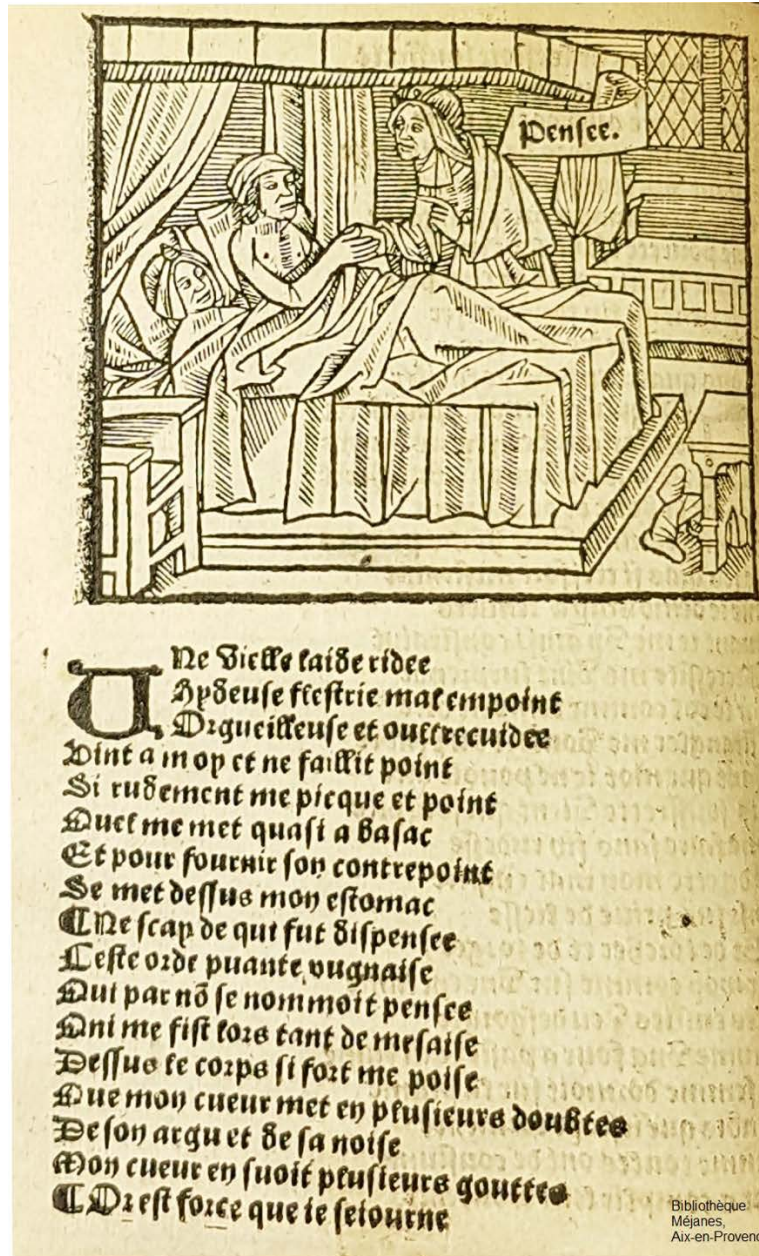 Pensee.
Une vielle laide ridee
Hydeuse flestrie mal empoint
Orgueilleuse et oultrecuidee
Vint a moy et ne faillit point
Si rudement me picque et point
Quel me met quasi a basac
Et pour fournir son contrepoint
Se met dessus mon estomac
¶Ne scay de qui fut dispensee
Ceste orde puante vugnaise
Qui par nõ se nommoit pensee
Qui me fist lors tant de mesaise
Dessus le corps si fort me poise
Que mon cueur met en plusieurs doubtes
De son argu et de sa noise
Mon cueur en suoit plusieurs gouttes
¶Or est force que ie seiourne
Bibliothèque
Méjanes,